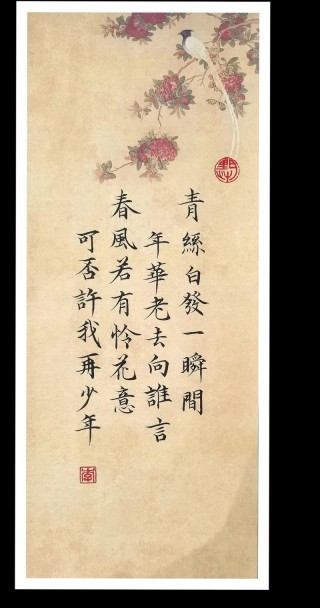 青絲白發一瞬間
年華老去向誰言
春風若有憐花意
可否許我再少年
李